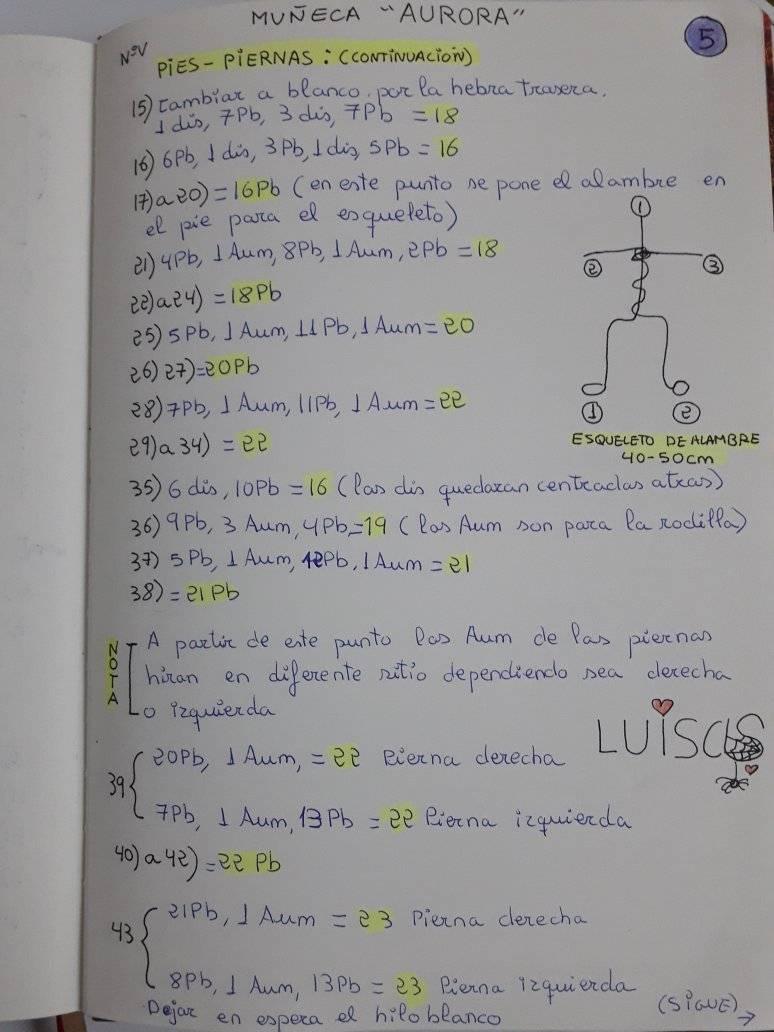 MUÑECA "AURORA"
5
NºV
PiES - PiERNAS : (CONTiNUACiÓN)
15) Cambiar a blanco por la hebra trasera.
1 dis, 7Pb, 3 dis, 7Pb = 18
16) 6Pb, 1 dis, 3Pb, 1 dis, 5Pb = 16
17) a 20) = 16Pb (en este punto se pone el alambre en
el pie para el esqueleto)
21) 4Pb, 1 Aum, 8Pb, 1 Aum, 2Pb = 18
22) a 24) = 18Pb
25) 5Pb, 1 Aum, 11Pb, 1 Aum = 20
26) 27) = 20Pb
28) 7Pb, 1 Aum, 11Pb, 1 Aum = 22
29) a 34) = 22
1
2
3
1
2
ESQUELETO DE ALAMBRE
40-50cm
35) 6 dis, 10Pb = 16 (las dis quedaran centradas atras)
36) 9Pb, 3 Aum, 4Pb = 19 (los Aum son para la rodilla)
37) 5Pb, 1 Aum, 12Pb, 1 Aum = 21
38) = 21Pb
NOTA
A partir de este punto los Aum de las piernas
hiran en diferente sitio dependiendo sea derecha
o izquierda
LUiSCIS
39 20Pb, 1 Aum, = 22 Pierna derecha
7Pb, 1 Aum, 13Pb = 22 Pierna izquierda
40) a 42) = 22 Pb
43 21Pb, 1 Aum = 23 Pierna derecha
8Pb, 1 Aum, 13Pb = 23 Pierna izquierda
Dejar en espera el hilo blanco
(SiGUE) →